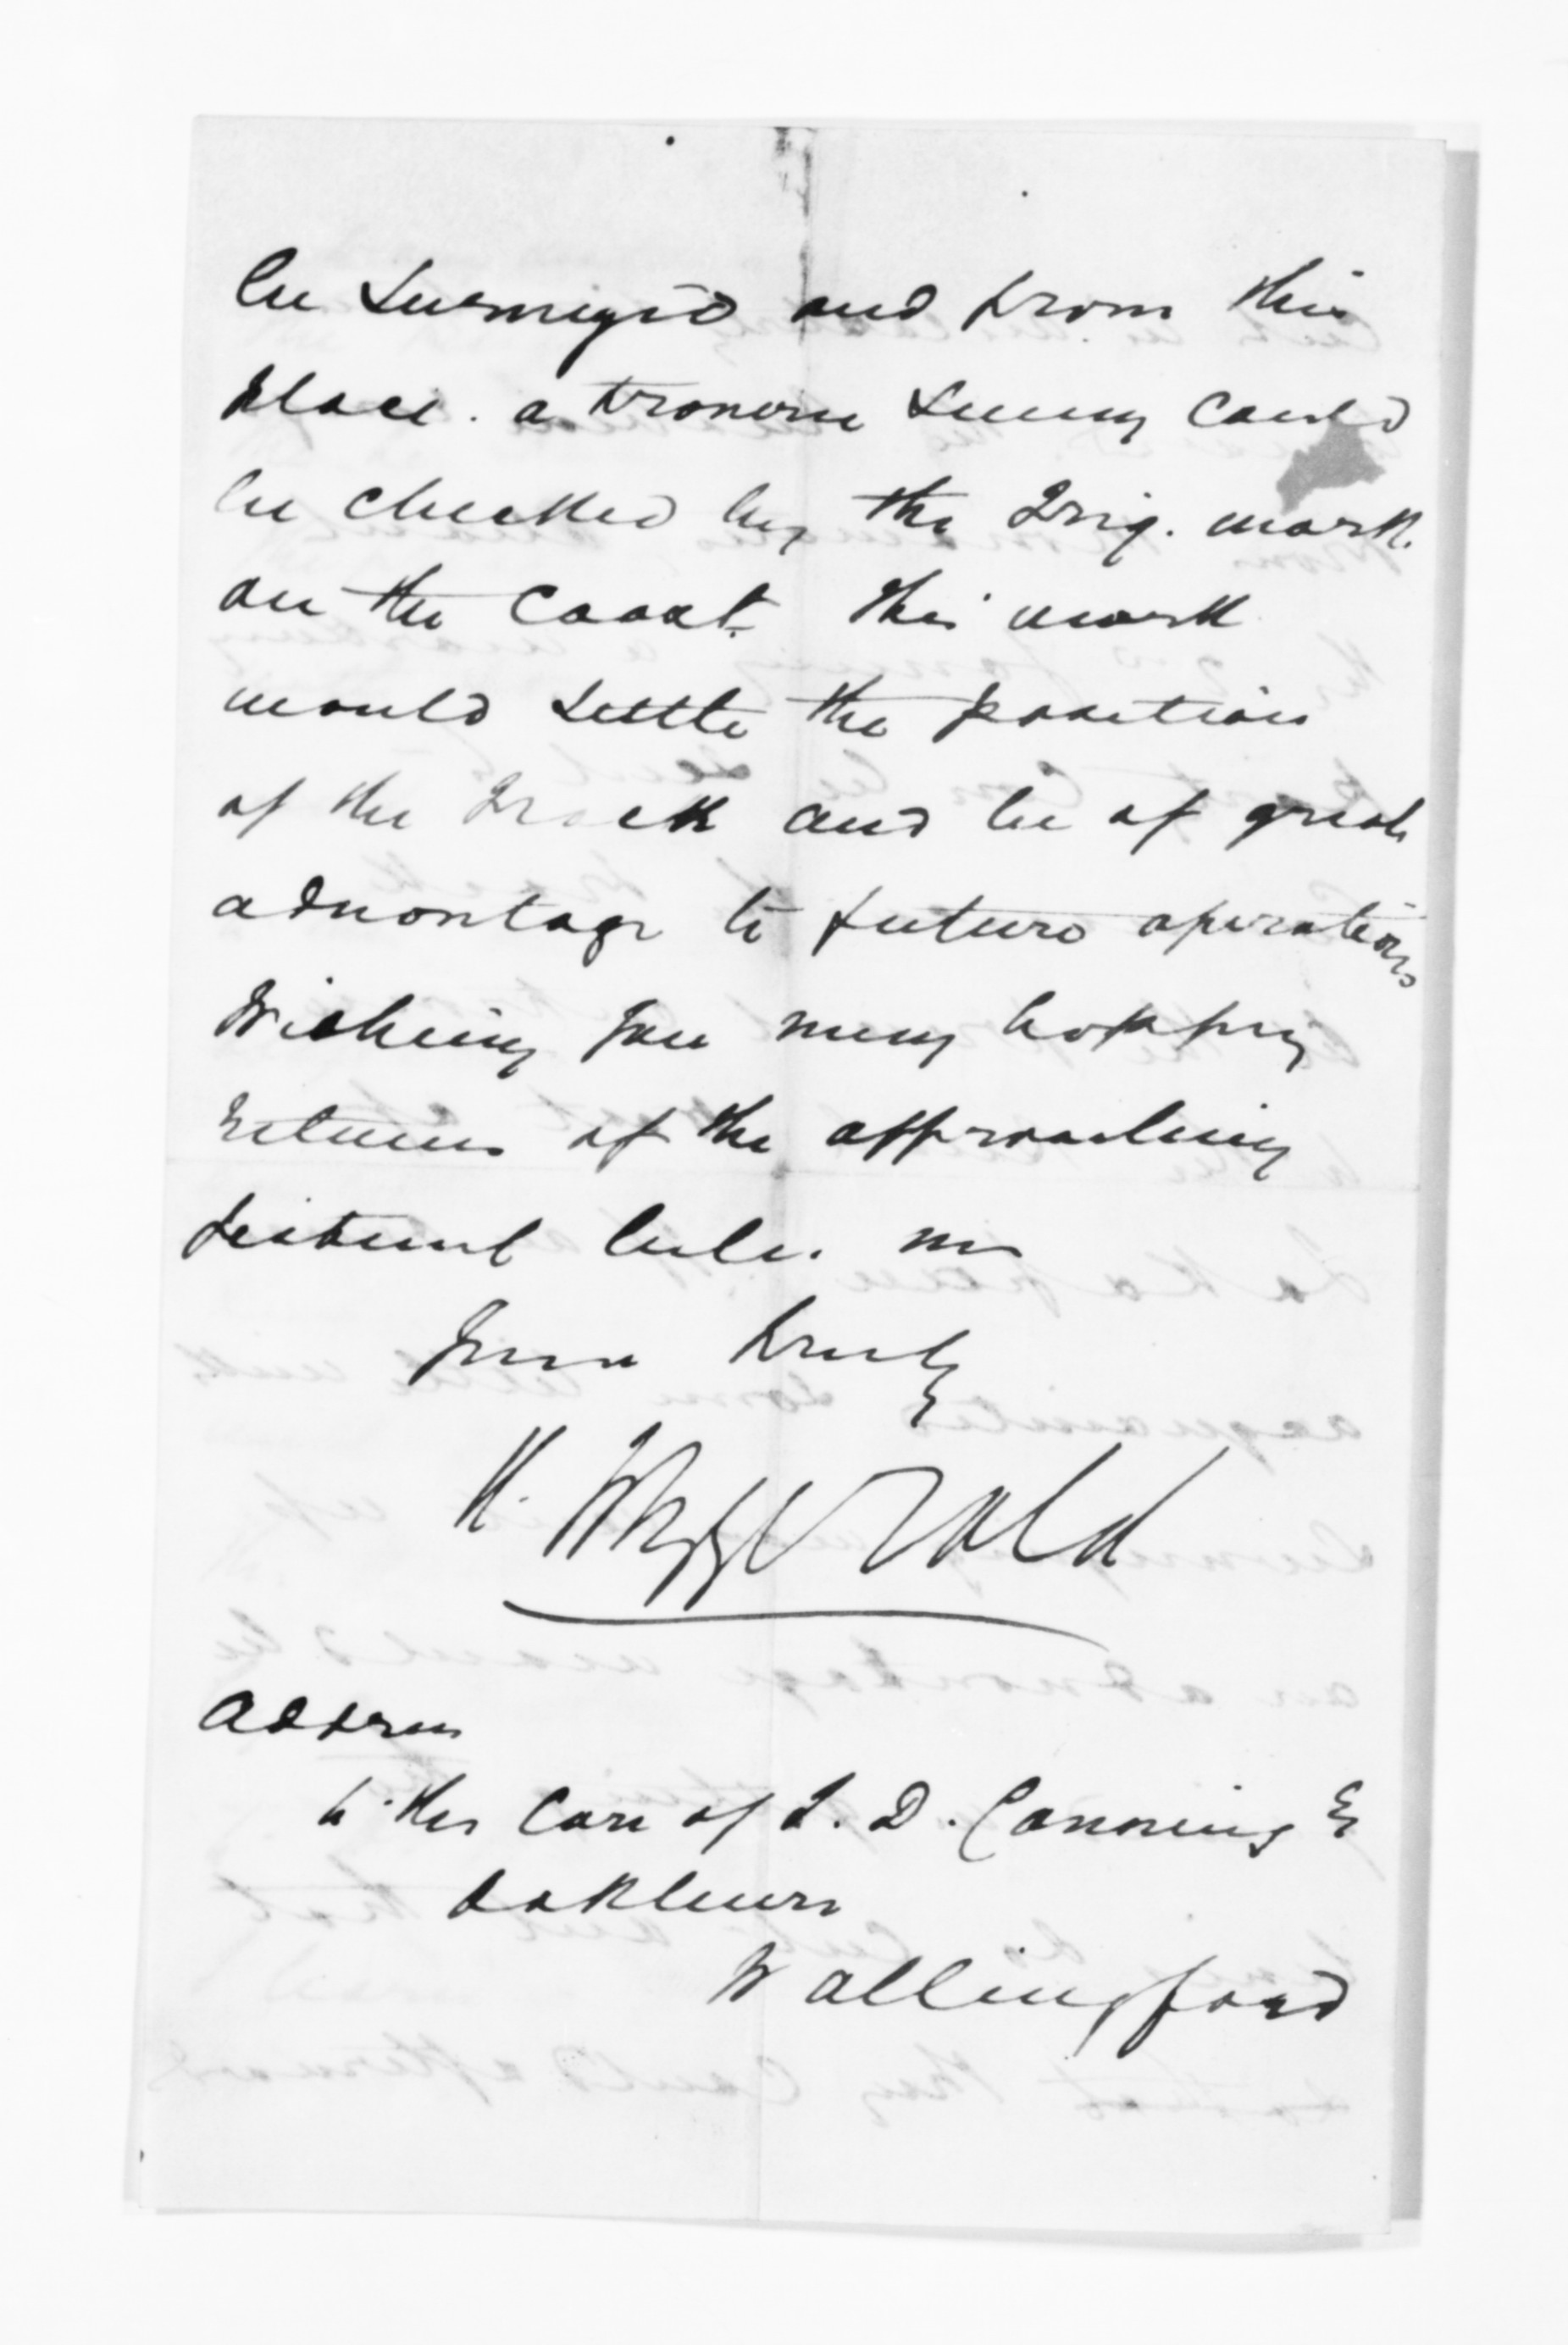 be surveyed and from this
place. a traverse survey could
be checked by the Trig. work.
on the Coast. This work
would settle the position
of the Track and be of great
advantage to future operations
Wishing you many happy
returns of the approaching
festival
Yours truly
H. Fitzgerald
Address
to the Care of J. D. Canning Eq
Oakbourne
Wallingford